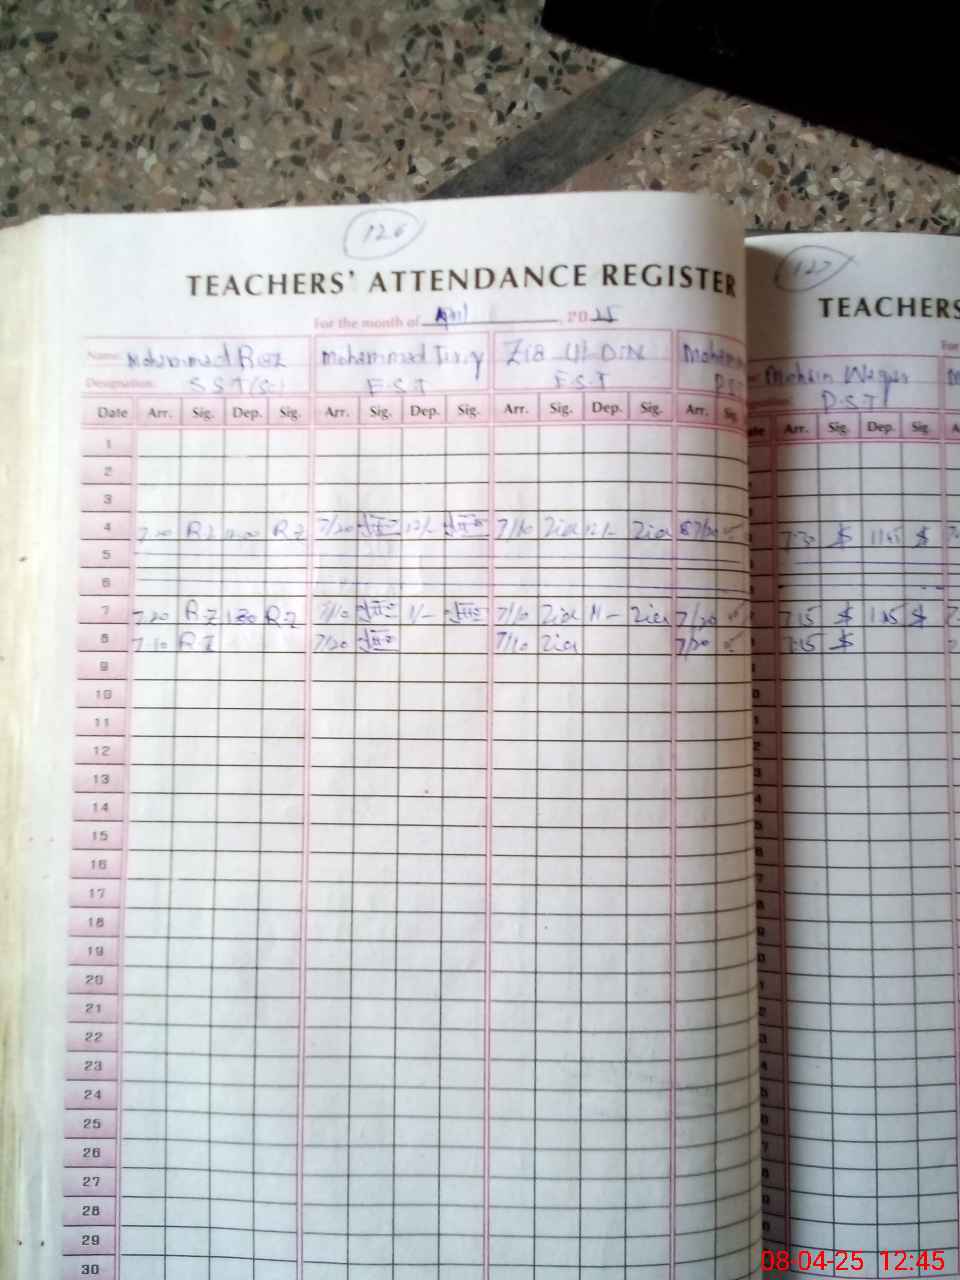 126
TEACHERS' ATTENDANCE REGISTER
For the month of April, 2025
Name: Mohammad Riaz Mohammad Zia Ul DIN
Designation: SST F.S.T F.S.T
Date Arr. Sig. Dep. Sig. Arr. Sig. Dep. Sig. Arr. Sig. Dep. Sig. Arr. Sig.
1
2
3
4 7.20 RZ 12.00 RZ 7/20 12/- 7/10 Zia 12/- Zia 7/20
5
6
7 7.20 RZ 1.30 RZ 7/10 1/- 7/10 Zia Zia 7/20
8 7.10 RZ 7/20 7/10 Zia 7/20
9
10
11
12
13
14
15
16
17
18
19
20
21
22
23
24
25
26
27
28
29
30
127
TEACHERS
For
Mohsin Waqas
P.S.T
Arr. Sig. Dep. Sig.
7.30 $ 11.45 $
7.15 $ 1.45 $
7.15 $
08-04-25 12:45